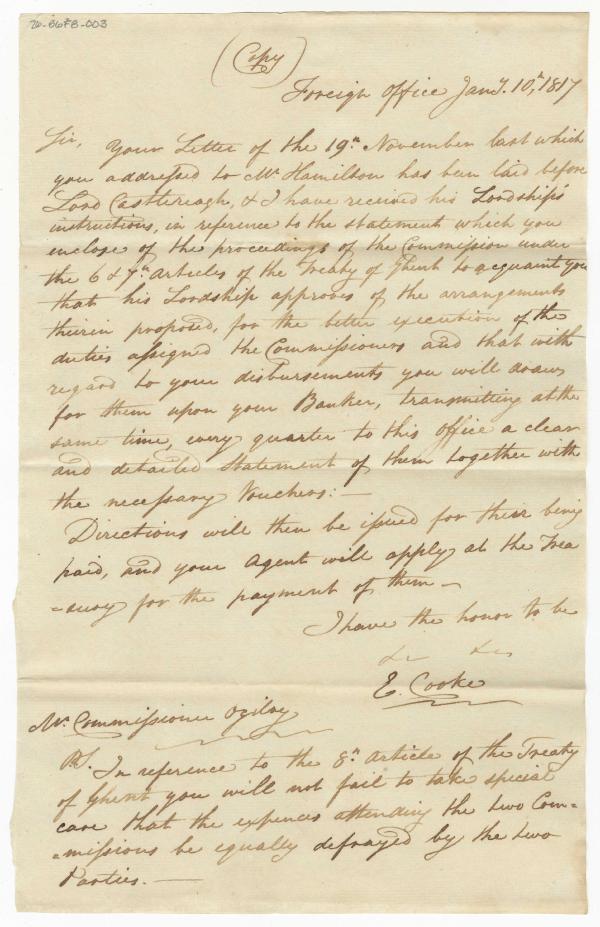 76-8678-003
(Copy)
Foreign Office Jany. 10th, 1817
Sir, Your Letter of the 19th November last which
you addressed to Mr Hamilton has been laid before
Lord Castlereagh, & I have received his Lordship's
instructions, in reference to the statement which you
enclose of the proceedings of the Commission under
the 6 & 7th Articles of the Treaty of Ghent to acquaint you
that his Lordship approves of the arrangements
therein proposed, for the better execution of the
duties assigned the Commissioners and that with
regard to your disbursements you will draw
for them upon your Banker, transmitting at the
same time, every quarter to this office a clear
and detailed Statement of them together with
the necessary Vouchers:—
Directions will then be issued for their being
paid, and your Agent will apply at the Trea
=sury for the payment of them—
I have the honor to be
&c &c
E. Cooke
Mr. Commissioner Ogilvy
P.S. In reference to the 8th Article of the Treaty
of Ghent you will not fail to take special
care that the expences attending the two Com=
=missions be equally defrayed by the two
Parties.—